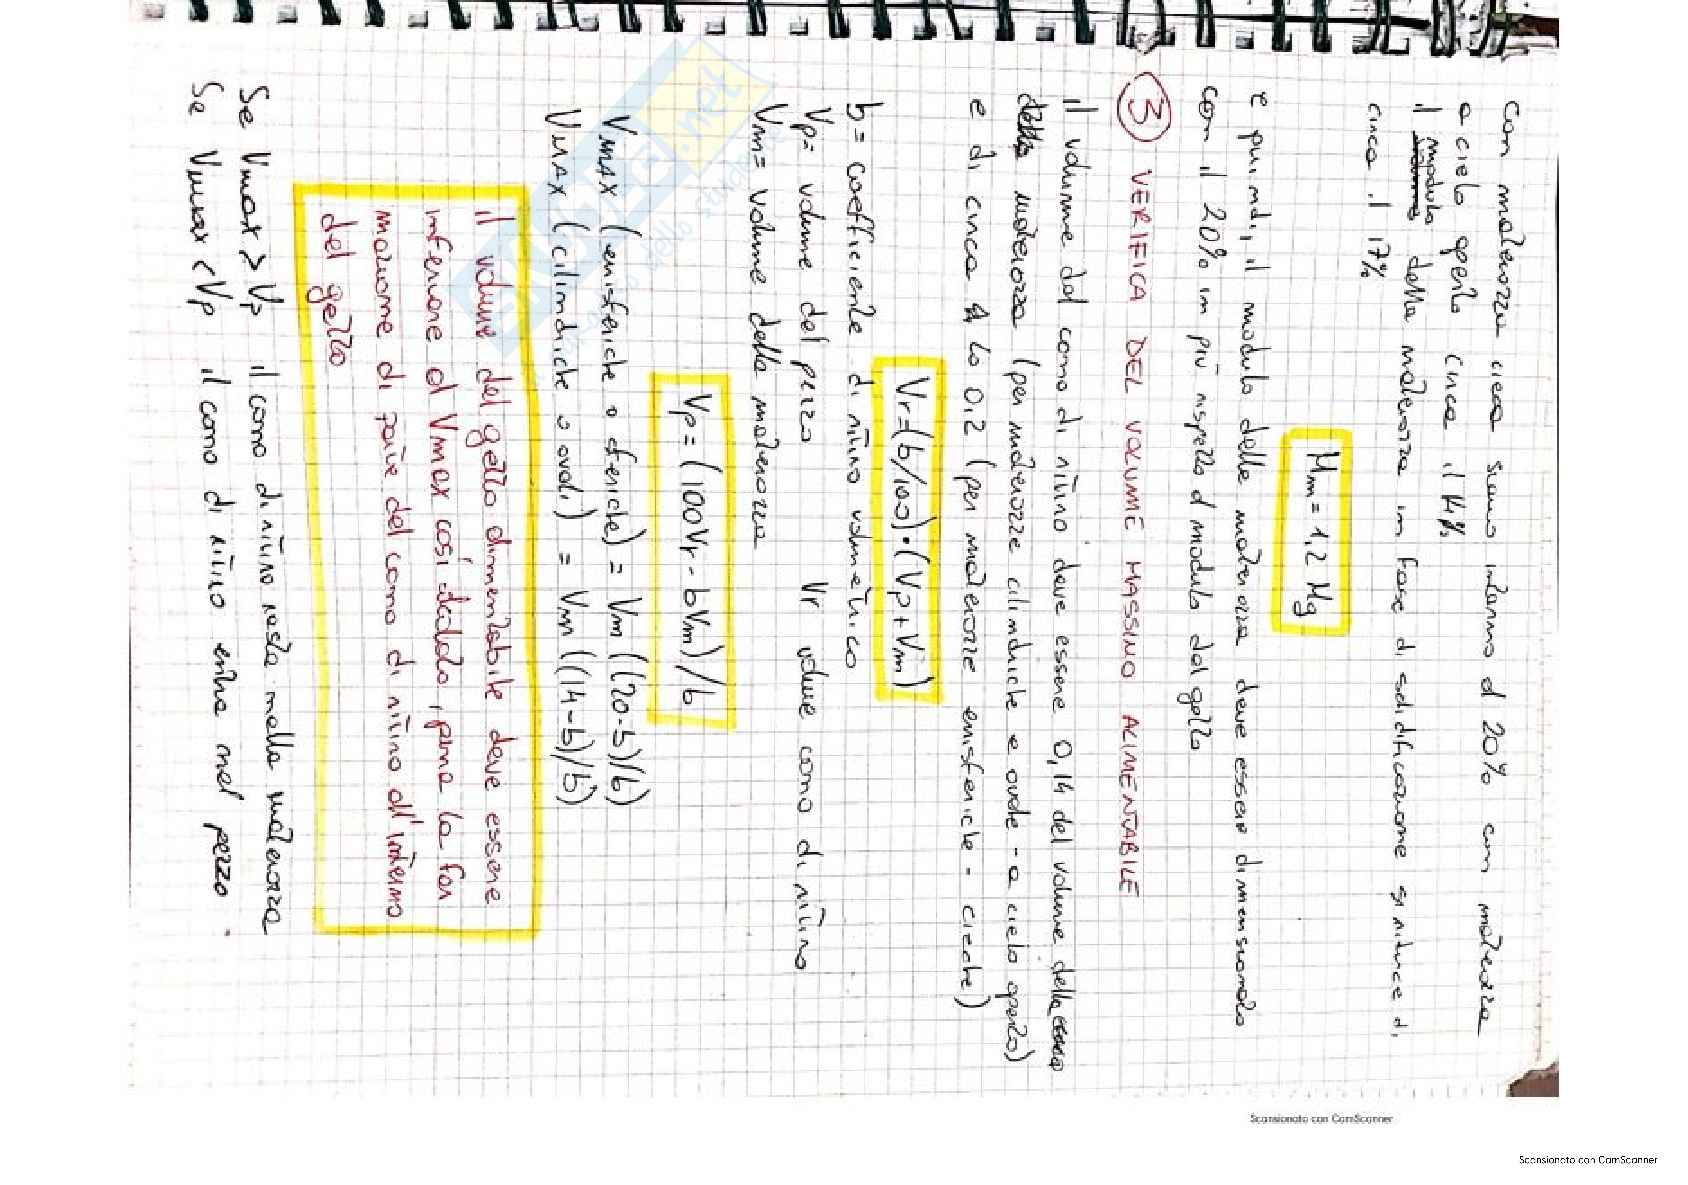 con materozza cieca siamo intorno al 20% con materozza
a cielo aperto circa il 14%
il modulo della materozza in fase di solidificazione si riduce di
circa il 17%
Mm = 1,2 Mg
e quindi, il modulo della materozza deve essere dimensionato
con il 20% in più rispetto al modulo del getto
3 VERIFICA DEL VOLUME MASSIMO ALIMENTABILE
il volume del cono di ritiro deve essere 0,14 del volume della
materozza (per materozze cilindriche e ovali - a cielo aperto)
e di circa lo 0,2 (per materozze emisferiche - cieche)
Vr=(b/100)·(Vp+Vm)
b= coefficiente di ritiro volumetrico
Vp= volume del pezzo Vr volume cono di ritiro
Vm= volume della materozza
Vp=(100Vr-bVm)/b
VMAX (emisferiche o sferiche) = Vm ((20-b)/b)
VMAX (cilindriche o ovali) = Vm ((14-b)/b)
il volume del getto alimentabile deve essere
inferiore al Vmax così dato, pena la for
mazione di parte del cono di ritiro all'interno
del getto
Se Vmax > Vp il cono di ritiro resta nella materozza
Se Vmax < Vp il cono di ritiro entra nel pezzo.
SKUOLA.net
dello studente
Scansionato con CamScanner
Scansionato con CamScanner